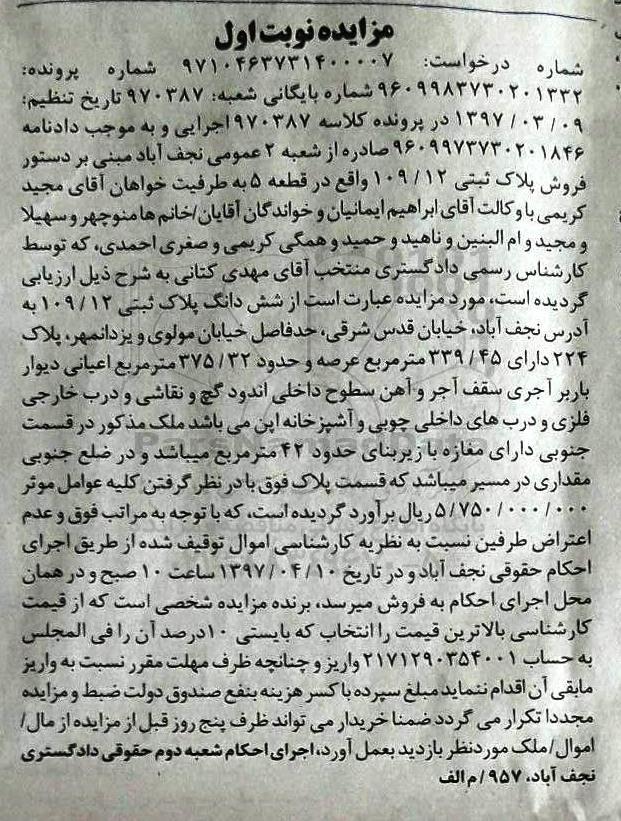 مزایده نوبت اول
شماره درخواست: ۹۷۱۰۴۶۳۷۳۱۴۰۰۰۰۷ شماره پرونده:
۹۶۰۹۹۸۳۷۳۰۲۰۱۳۳۲ شماره بایگانی شعبه: ۹۷۰۳۸۷ تاریخ تنظیم:
۱۳۹۷/۰۳/۰۹ در پرونده کلاسه ۹۷۰۳۸۷ اجرایی و به موجب دادنامه
۹۶۰۹۹۷۳۷۳۰۲۰۱۸۴۶ صادره از شعبه ۲ عمومی نجف آباد مبنی بر دستور
فروش پلاک ثبتی ۱۰۹/۱۲ واقع در قطعه ۵ به طرفیت خواهان آقای مجید
کریمی با وکالت آقای ابراهیم ایمانیان و خواندگان آقایان/خانم ها منوچهر و سهیلا
و مجید و ام البنین و ناهید و حمید و همگی کریمی و صغری احمدی، که توسط
کارشناس رسمی دادگستری منتخب آقای مهدی کتانی به شرح ذیل ارزیابی
گردیده است، مورد مزایده عبارت است از شش دانگ پلاک ثبتی ۱۰۹/۱۲ به
آدرس نجف آباد، خیابان قدس شرقی، حدفاصل خیابان مولوی و یزدانمهر، پلاک
۲۲۴ دارای ۳۳۹/۴۵ مترمربع عرصه و حدود ۳۷۵/۳۲ مترمربع اعیانی دیوار
باربر آجری سقف آجر و آهن سطوح داخلی اندود گچ و نقاشی و درب خارجی
فلزی و درب های داخلی چوبی و آشپزخانه اپن می باشد ملک مذکور در قسمت
جنوبی دارای مغازه با زیربنای حدود ۴۲ مترمربع میباشد و در ضلع جنوبی
مقداری در مسیر میباشد که قسمت پلاک فوق با در نظر گرفتن کلیه عوامل موثر
۵/۷۵۰/۰۰۰/۰۰۰ ریال برآورد گردیده است، که با توجه به مراتب فوق و عدم
اعتراض طرفین نسبت به نظریه کارشناسی اموال توقیف شده از طریق اجرای
احکام حقوقی نجف آباد و در تاریخ ۱۳۹۷/۰۴/۱۰ ساعت ۱۰ صبح و در همان
محل اجرای احکام به فروش میرسد، برنده مزایده شخصی است که از قیمت
کارشناسی بالاترین قیمت را انتخاب که بایستی ۱۰درصد آن را فی المجلس
به حساب ۲۱۷۱۲۹۰۳۵۴۰۰۱ واریز و چنانچه ظرف مهلت مقرر نسبت به واریز
مابقی آن اقدام ننماید مبلغ سپرده با کسر هزینه بنفع صندوق دولت ضبط و مزایده
مجددا تکرار می گردد ضمنا خریدار می تواند ظرف پنج روز قبل از مزایده از مال/
اموال/ملک موردنظر بازدید بعمل آورد، اجرای احکام شعبه دوم حقوقی دادگستری
نجف آباد، ۹۵۷/م الف
ParsNamadData